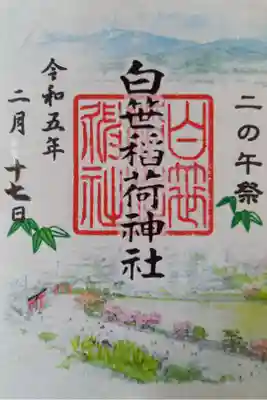 二の午祭
白笹稲荷神社
白笹
稲荷社
令和五年
二月 十七日